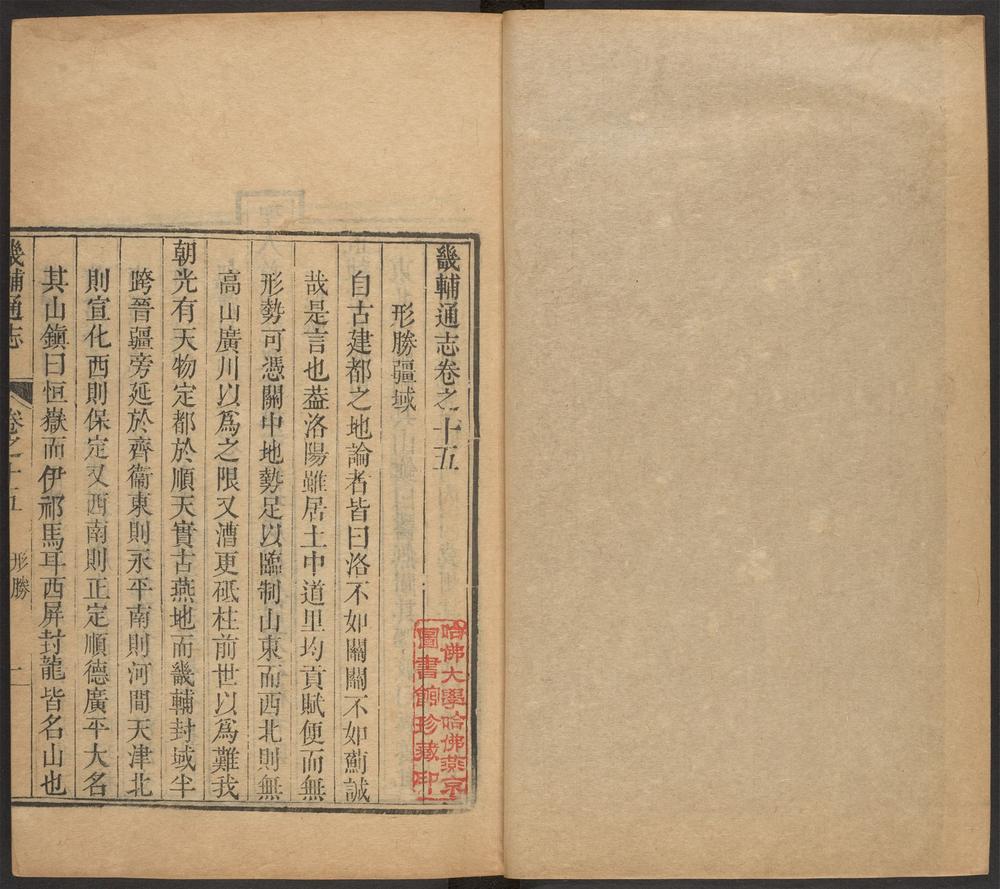 畿輔通志卷之十五
形勝疆域
自古建都之地論者皆曰洛不如關關不如薊誠
哉是言也葢洛陽雖居土中道里均貢賦便而無
形勢可憑關中地勢足以臨制山東而西北則無
高山廣川以爲之限又漕更砥柱前世以爲難我
朝光有天物定都於順天實古燕地而畿輔封域半
跨晉疆旁延於齊衞東則永平南則河間天津北
則宣化西則保定又西南則正定順德廣平大名
其山鎭曰恒嶽而伊祁馬耳西屏封龍皆名山也
畿輔通志
卷之十五
形勝
一
哈佛大學哈佛燕京
圖書館珍藏印